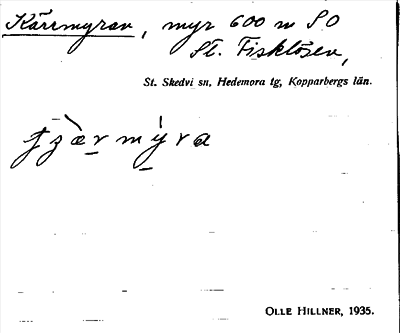 Kärrmyran, myr 600 m SO
St. Fisklösen,
St. Skedvi sn, Hedemora tg, Kopparbergs län.
tjæ̀r̠mý̠ra
OLLE HILLNER, 1935.